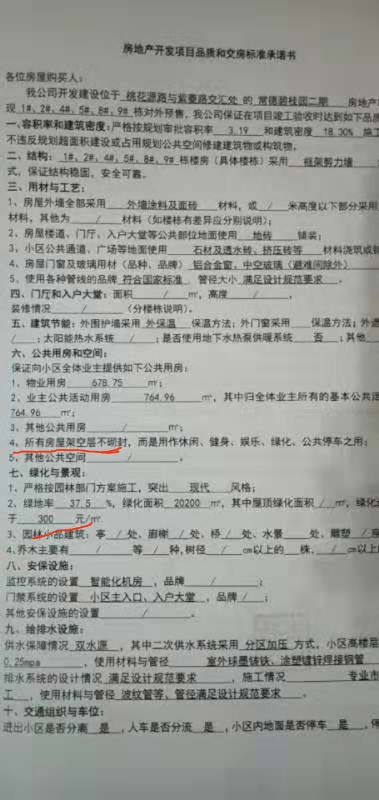 房地产开发项目品质和交房标准承诺书
各位房屋购买人：
我公司开发建设位于 桃花源路与紫菱路交汇处 的 常德碧桂园二期 房地产
现 1#、2#、4#、5#、8#、9# 栋对外预售，我公司保证在项目竣工验收时达到如下品质
一、容积率和建筑密度：严格按规划审批容积率 3.19 和建筑密度 18.30% 施工
不违反规划超面积建设或占用规划公共空间修建建筑物或构筑物。
二、结构： 1#、2#、4#、5#、8#、9# 栋楼房（具体楼栋）采用 框架剪力墙
式，保证结构稳固，安全可靠。
三、用材与工艺：
1、房屋外墙全部采用 外墙涂料及面砖 材料，或 / 米高度以下部分采用
材料，其他为 / 材料（如楼栋有差异应分别说明）；
2、房屋楼道、门厅、入户大堂等公共部位地面使用 地砖 铺装；
3、小区公共通道、广场等地面使用 石材及透水砖、挤压砖等 材料浇筑或铺
4、房屋门窗及玻璃用材（品种、品牌） 铝合金窗，中空玻璃（避难间除外）
5、使用各种管线的品牌 符合国家标准 、管径大小 满足设计规范要求 。
四、门厅和入户大堂：面积 / ㎡，高度 / ，
装修情况 / （分楼栋说明）。
五、建筑节能：外围护墙采用 外保温 保温方法；外门窗采用 保温方法；外遮
/ ；太阳能热水系统 / ；是否使用地下水热泵供暖系统 否 ；其他
六、公共用房和空间：
保证向小区全体业主提供如下公共用房：
1、物业用房 678.75 ㎡；
2、业主公共活动用房 764.96 ㎡，其中归全体业主所有的基本公共活
764.96 ㎡；
3、其他公共用房 / ㎡；
4、所有房屋架空层不砌封，而是用作休闲、健身、娱乐、绿化、公共停车之用；
5、其他公共空间 / 。
七、绿化与景观：
1、严格按园林部门方案施工，突出 现代 风格；
2、绿地率 37.5 %，绿化面积 20200 ㎡，其中屋顶绿化面积 / ㎡，绿化
于 300 元/㎡
3、园林小品建筑：亭 / 处、廊榭 / 处、桥 / 处、水景 处、雕塑 / 座
4.乔木主要有 / 等 / 种，树径 / ㎝以上的 株， / ㎝以上
八、安保设施：
监控系统的设置 智能化机房 ，品牌 / ；
门禁系统的设置 小区主入口、入户大堂 ，品牌 / ；
其他安保设施的设置 / 。
九、给排水设施：
供水保障情况 双水源 ，其中二次供水系统采用 分区加压 方式，小区高楼层
0.25mpa ，使用材料与管径 室外球墨铸铁、涂塑镀锌焊接钢管
排水系统的设计情况 满足设计规范要求 ， 施工情况 专业市
工 ，使用材料与管径 波纹管等、管径满足设计规范要求 。
十、交通组织与车位：
进出小区是否分离 是 ，人车是否分流 是 ，小区内地面是否停车 是 ，停